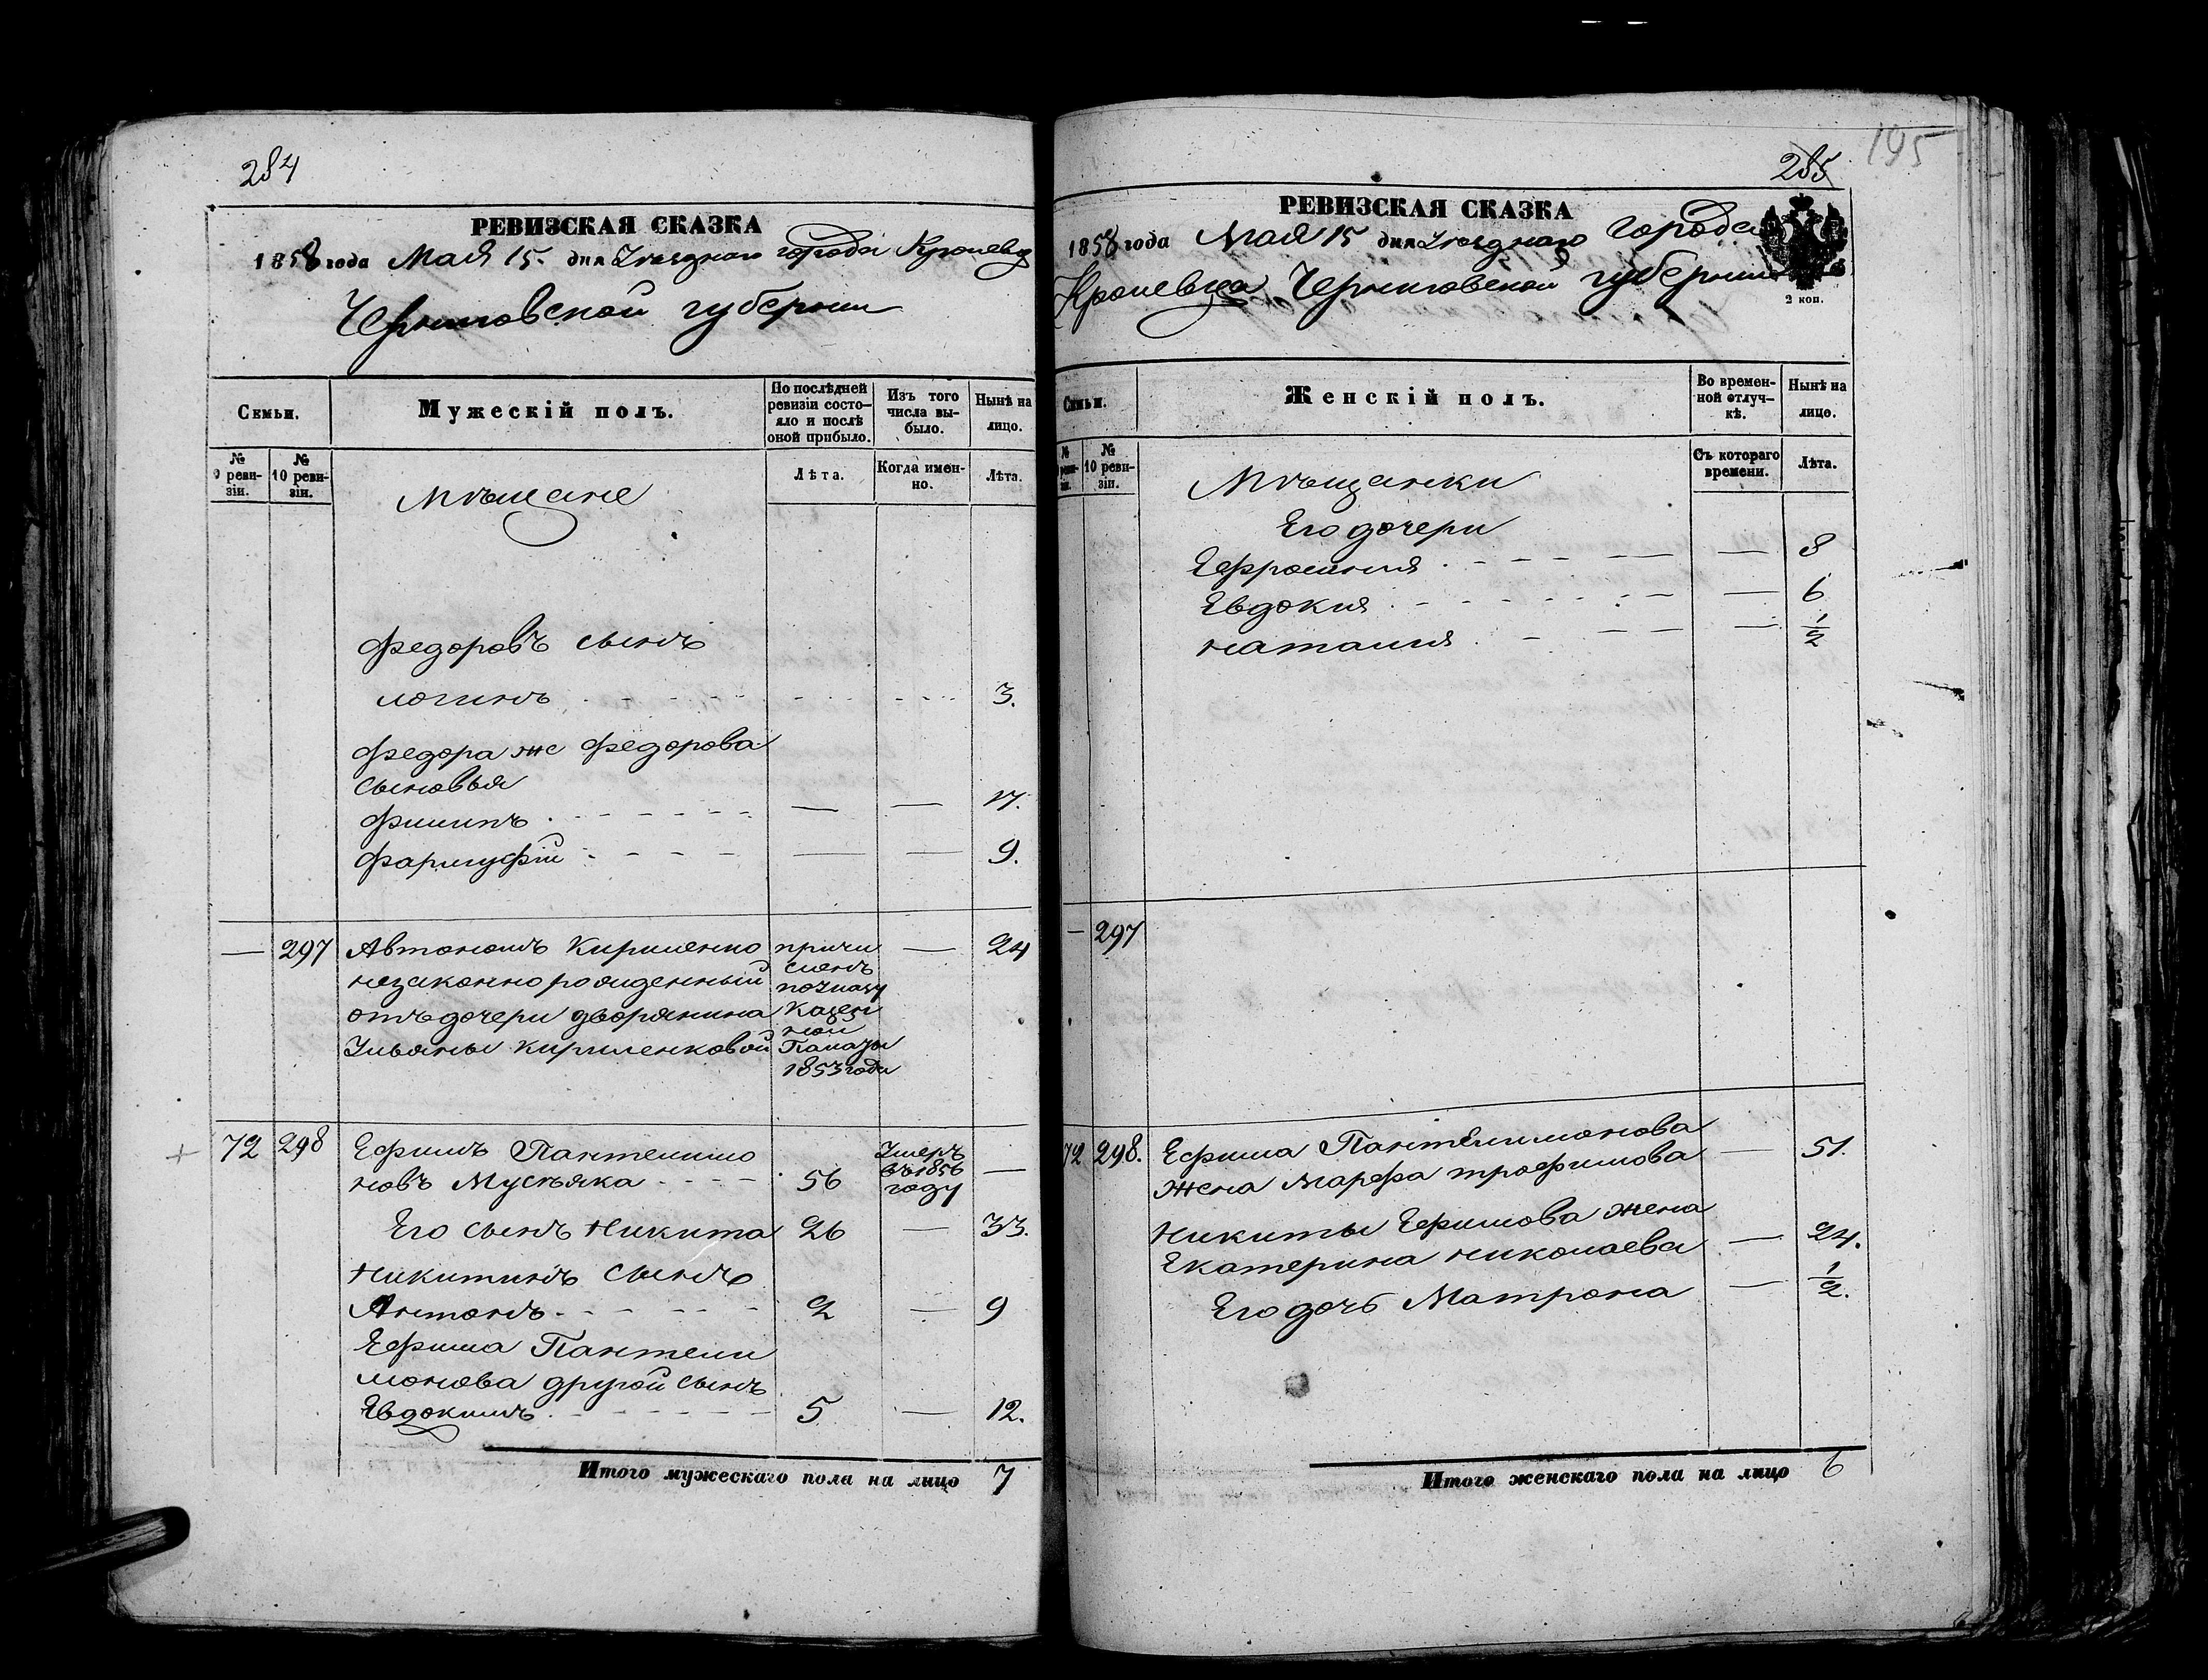 284
РЕВИЗСКАЯ СКАЗКА
1858 года Мая 15. дня Уезднаго города Кролевца
Черниговской губернии
Семьи.
Мужескій полъ.
По послѣдней ревизіи состо-
яло и послѣ
оной прибыло.
Изъ того
числа вы-
было.
Нынѣ на
лицо.
№
9 реви-
зіи.
№
10 реви-
зіи.
Мѣщане
Лѣта.
Когда имен-
но.
Лѣта.
Федоровъ сынъ
логинъ 3.
Федора же Федорова
сыновья
Филипъ — — 17.
Фармуфій — — 9.
— 297 Автономъ Кириленко причи — 24
незаконно рожденный сленъ
поуказу
отъ дочери дворянина Казен
ной
Ульяны Кириленковой Палаты
1853 года
72 298 Ефимъ Пантелимо Умеръ
новъ Мусѣяка 56 въ 1856 —
году
Его сынъ Никита 26 — 33.
Никитинъ сынъ
Антонъ 2 — 9
Ефима Пантели
монова другой сынъ
Евдокимъ 5 — 12.
Итого мужескаго пола на лицо 7
195
285
РЕВИЗСКАЯ СКАЗКА
1858 года Мая 15 дня Уезднаго города
Кролевца Черниговской губернии
2 коп.
Семьи.
Женскій полъ.
Во времен-
ной отлуч-
кѣ.
Нынѣ на
лицо.
№
реви-
зіи.
№
10 реви-
зіи.
Мѣщанки
Съ котораго
времени.
Лѣта.
Его дочери
Ефросиния — 8
Евдокия — 6
Наталия — 1/2
— 297
72 298. Ефима Пантелимонова
жена Марфа Трофимова — 51.
Никиты Ефимова жена
Екатерина Николаева — 24.
Его дочь Матрона — 1/2.
Итого женскаго пола на лицо 6